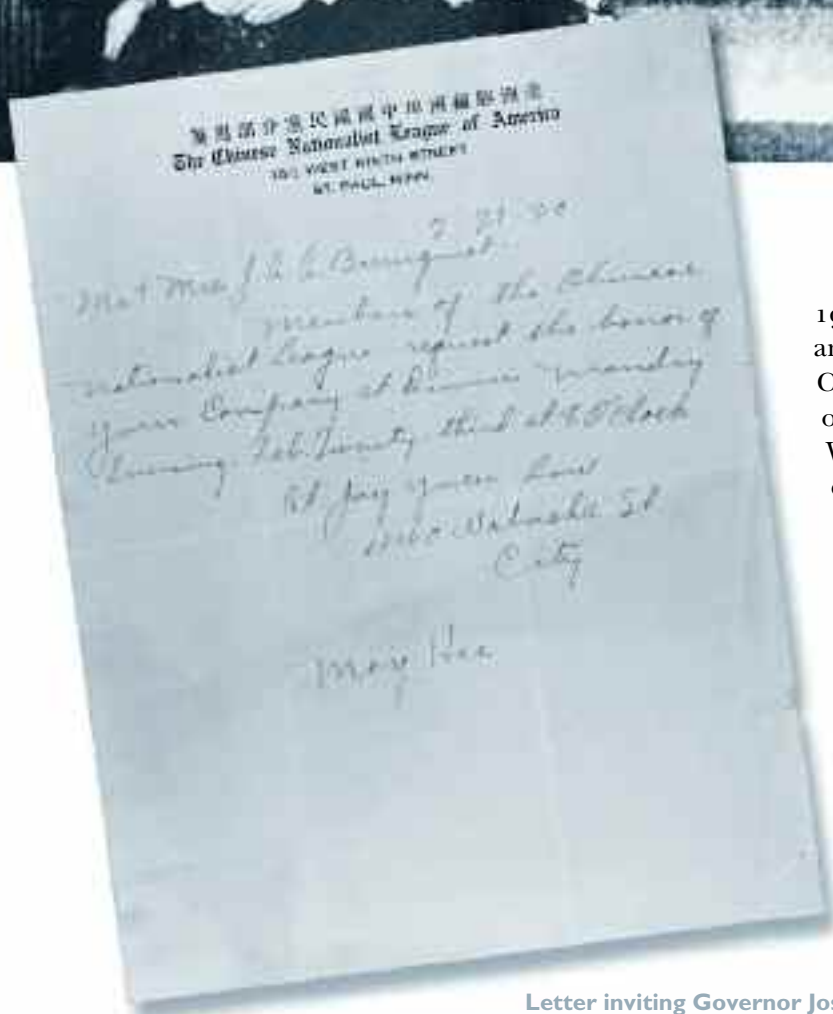 The Chinese Nationalist League of America
WEST NINTH STREET
ST. PAUL, MINN.
2 21 20
Mr & Mrs J. A. A. Burnquist
members of the Chinese
nationalist League request the honor of
your Company at Dinner monday
Evening Feb. Twenty third at 8 O'Clock
At Joy yuen Low
St
City
Moy Hee
19
an
O
o
W
Letter inviting Governor Jos